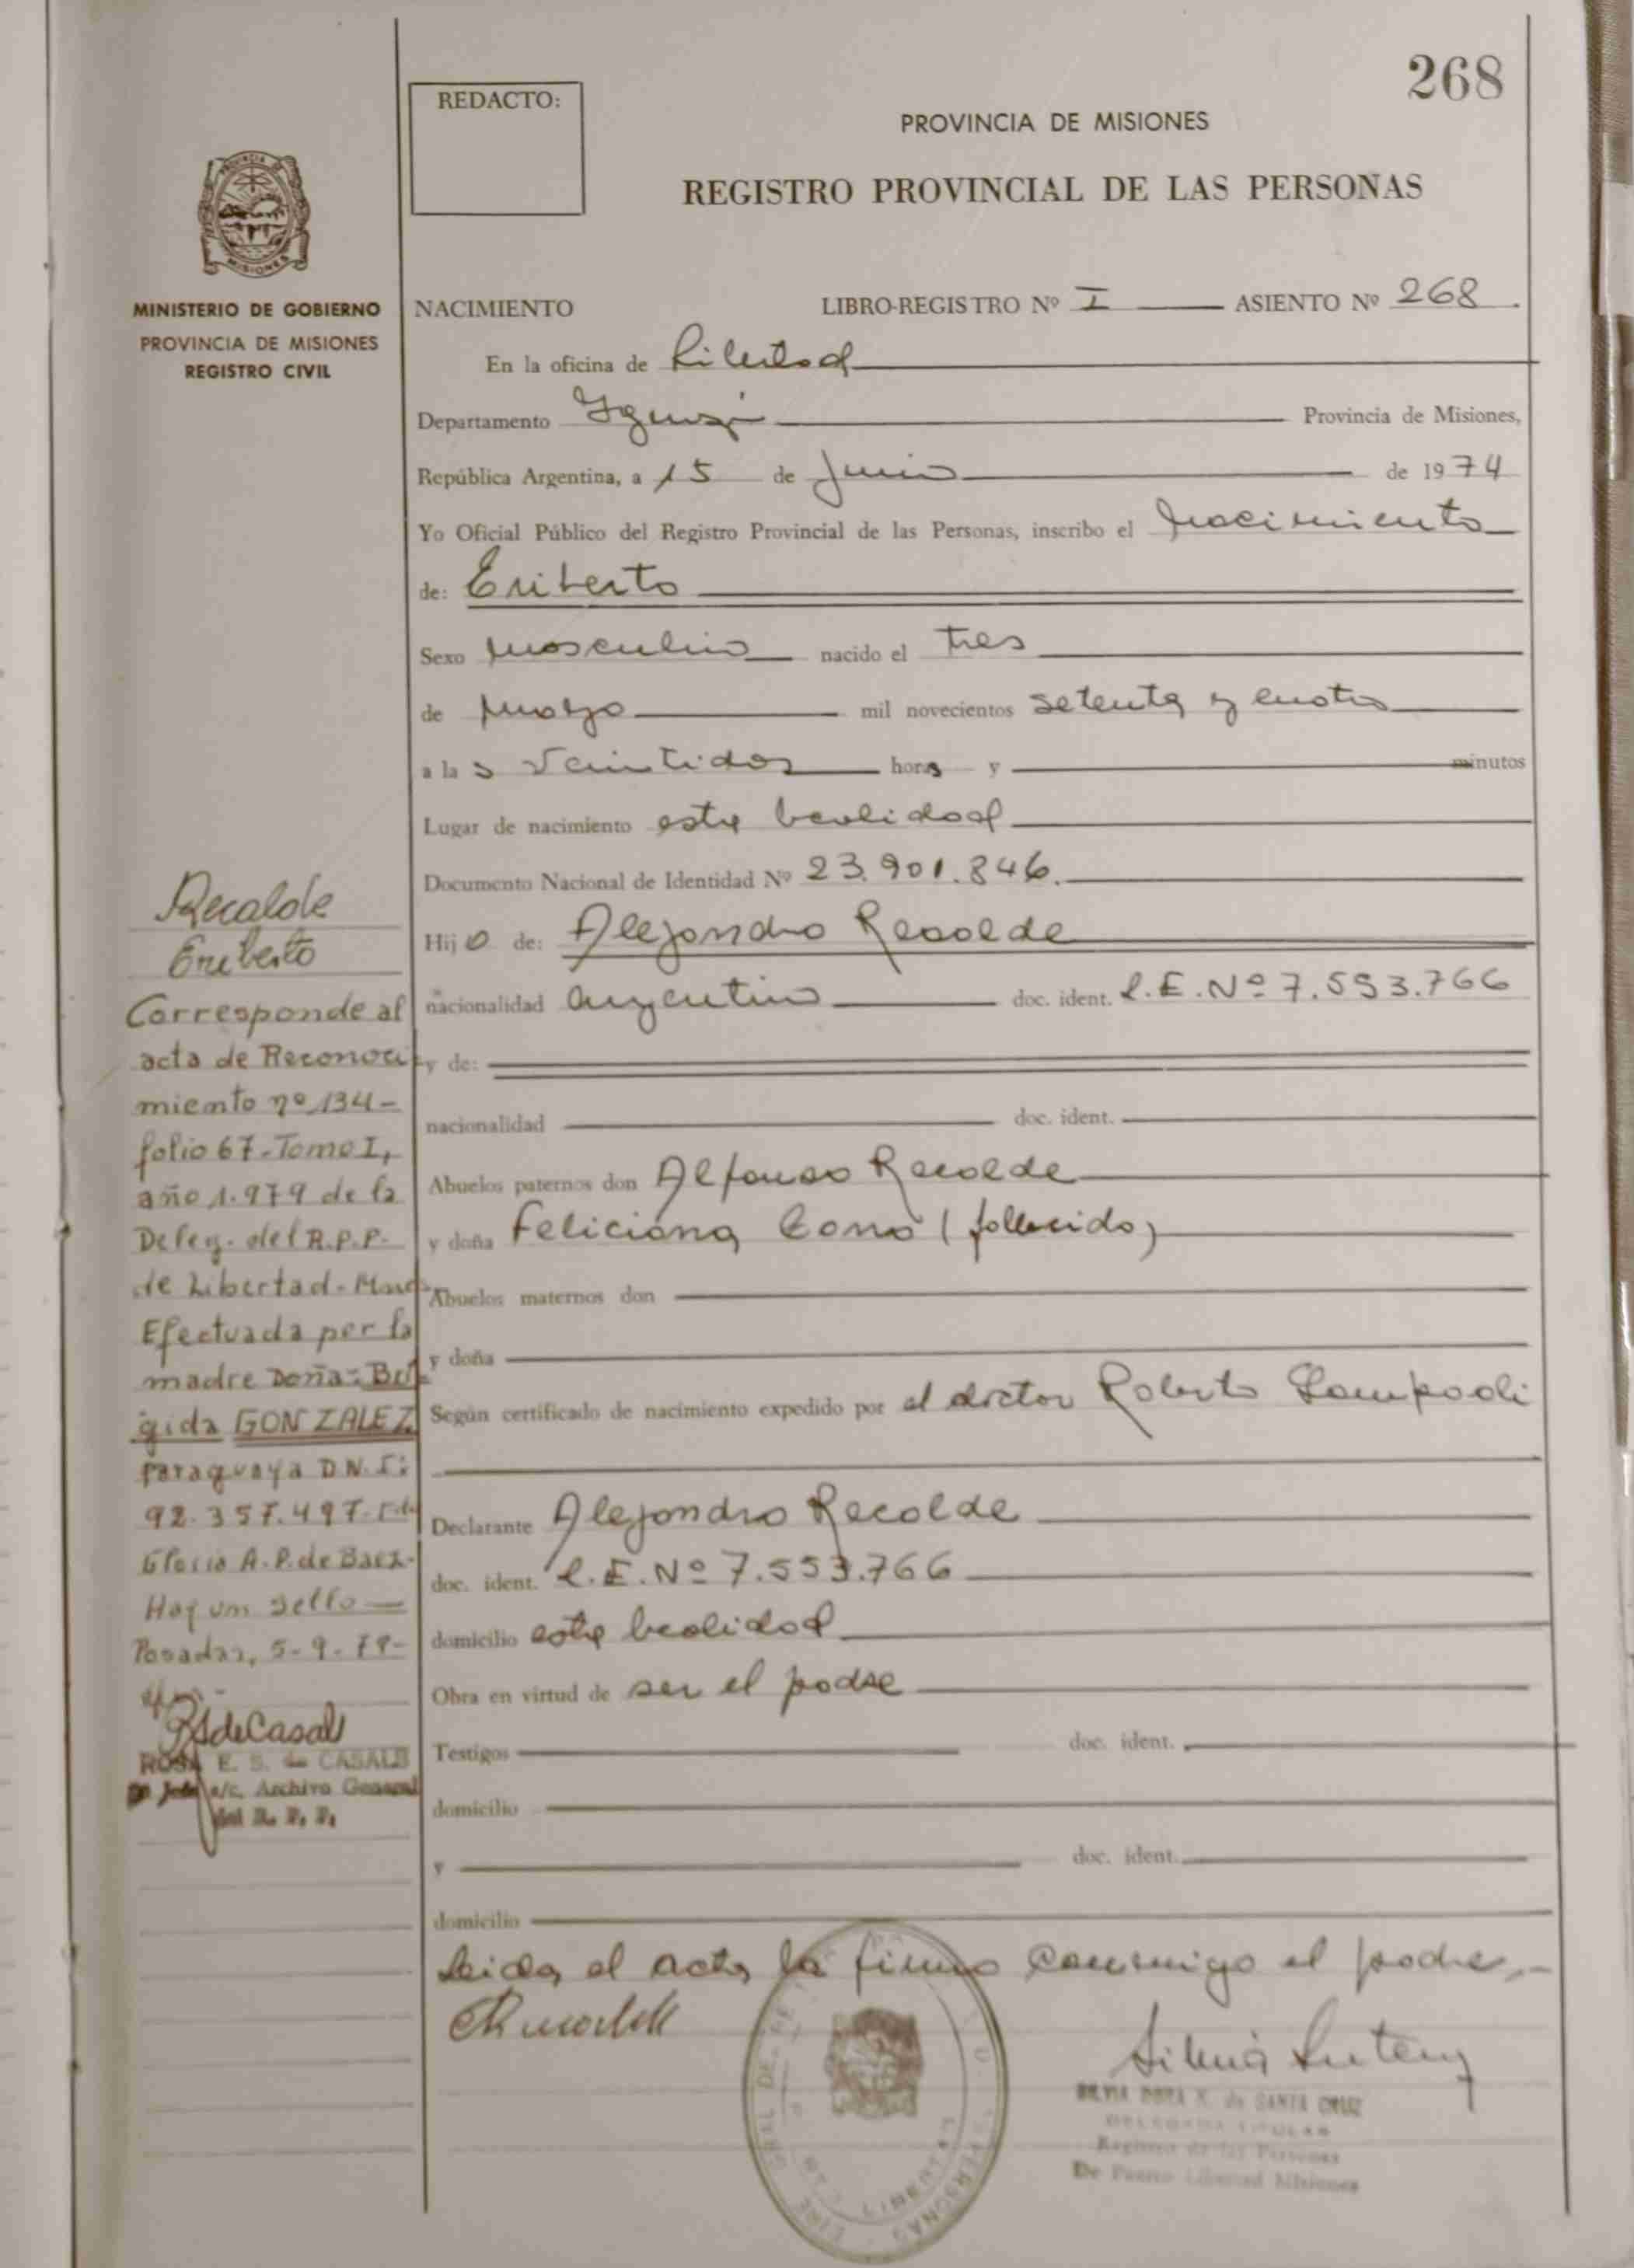 268
REDACTO:
PROVINCIA DE MISIONES
REGISTRO PROVINCIAL DE LAS PERSONAS
MINISTERIO DE GOBIERNO
PROVINCIA DE MISIONES
REGISTRO CIVIL
NACIMIENTO LIBRO-REGISTRO Nº I ASIENTO Nº 268
En la oficina de Libertad
Departamento Iguazú Provincia de Misiones,
República Argentina, a 15 de Junio de 1974
Yo Oficial Público del Registro Provincial de las Personas, inscribo el nacimiento
de: Eriberto
Sexo masculino nacido el tres
de marzo mil novecientos setenta y cuatro
a las veintidos horas y minutos
Lugar de nacimiento esta localidad
Documento Nacional de Identidad Nº 23.901.846.
Hijo de: Alejandro Recalde
nacionalidad argentino doc. ident. L.E. Nº 7.553.766
y de:
nacionalidad doc. ident.
Abuelos paternos don Alfonso Recalde
y doña Feliciana (fallecido)
Abuelos maternos don
y doña
Según certificado de nacimiento expedido por el doctor Roberto
Declarante Alejandro Recalde
doc. ident. L.E. Nº 7.553.766
domicilio esta localidad
Obra en virtud de ser el padre
Testigos doc. ident.
domicilio
y doc. ident.
domicilio
Leida el acta la firma conmigo el padre.-
Recalde
Eriberto
Corresponde al
acta de Reconoci
miento nº 134-
folio 67-Tomo I,
año 1.979 de la
Deleg. del R.P.P.
de Libertad-
Efectuada por la
madre Doña:
gida GONZALEZ
Paraguaya D.N.I:
92.357.497-
Gloria A.P. de Baez-
Hay un sello
Posadas, 5-9-79-
RSdeCasals
ROSA E. S. de CASALS
a/c. Archivo General
del R. P. P.
SILVIA DORA K. de SANTA CRUZ
DELEGADA TITULAR
Registro de las Personas
De Puerto Libertad Misiones
LIBERTAD
PERSONAS